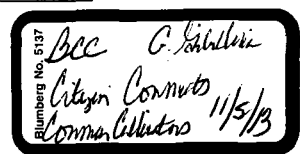 Blumberg No. 5137
BCC G.
Citizen Comments
Common Collectors 11/5/13